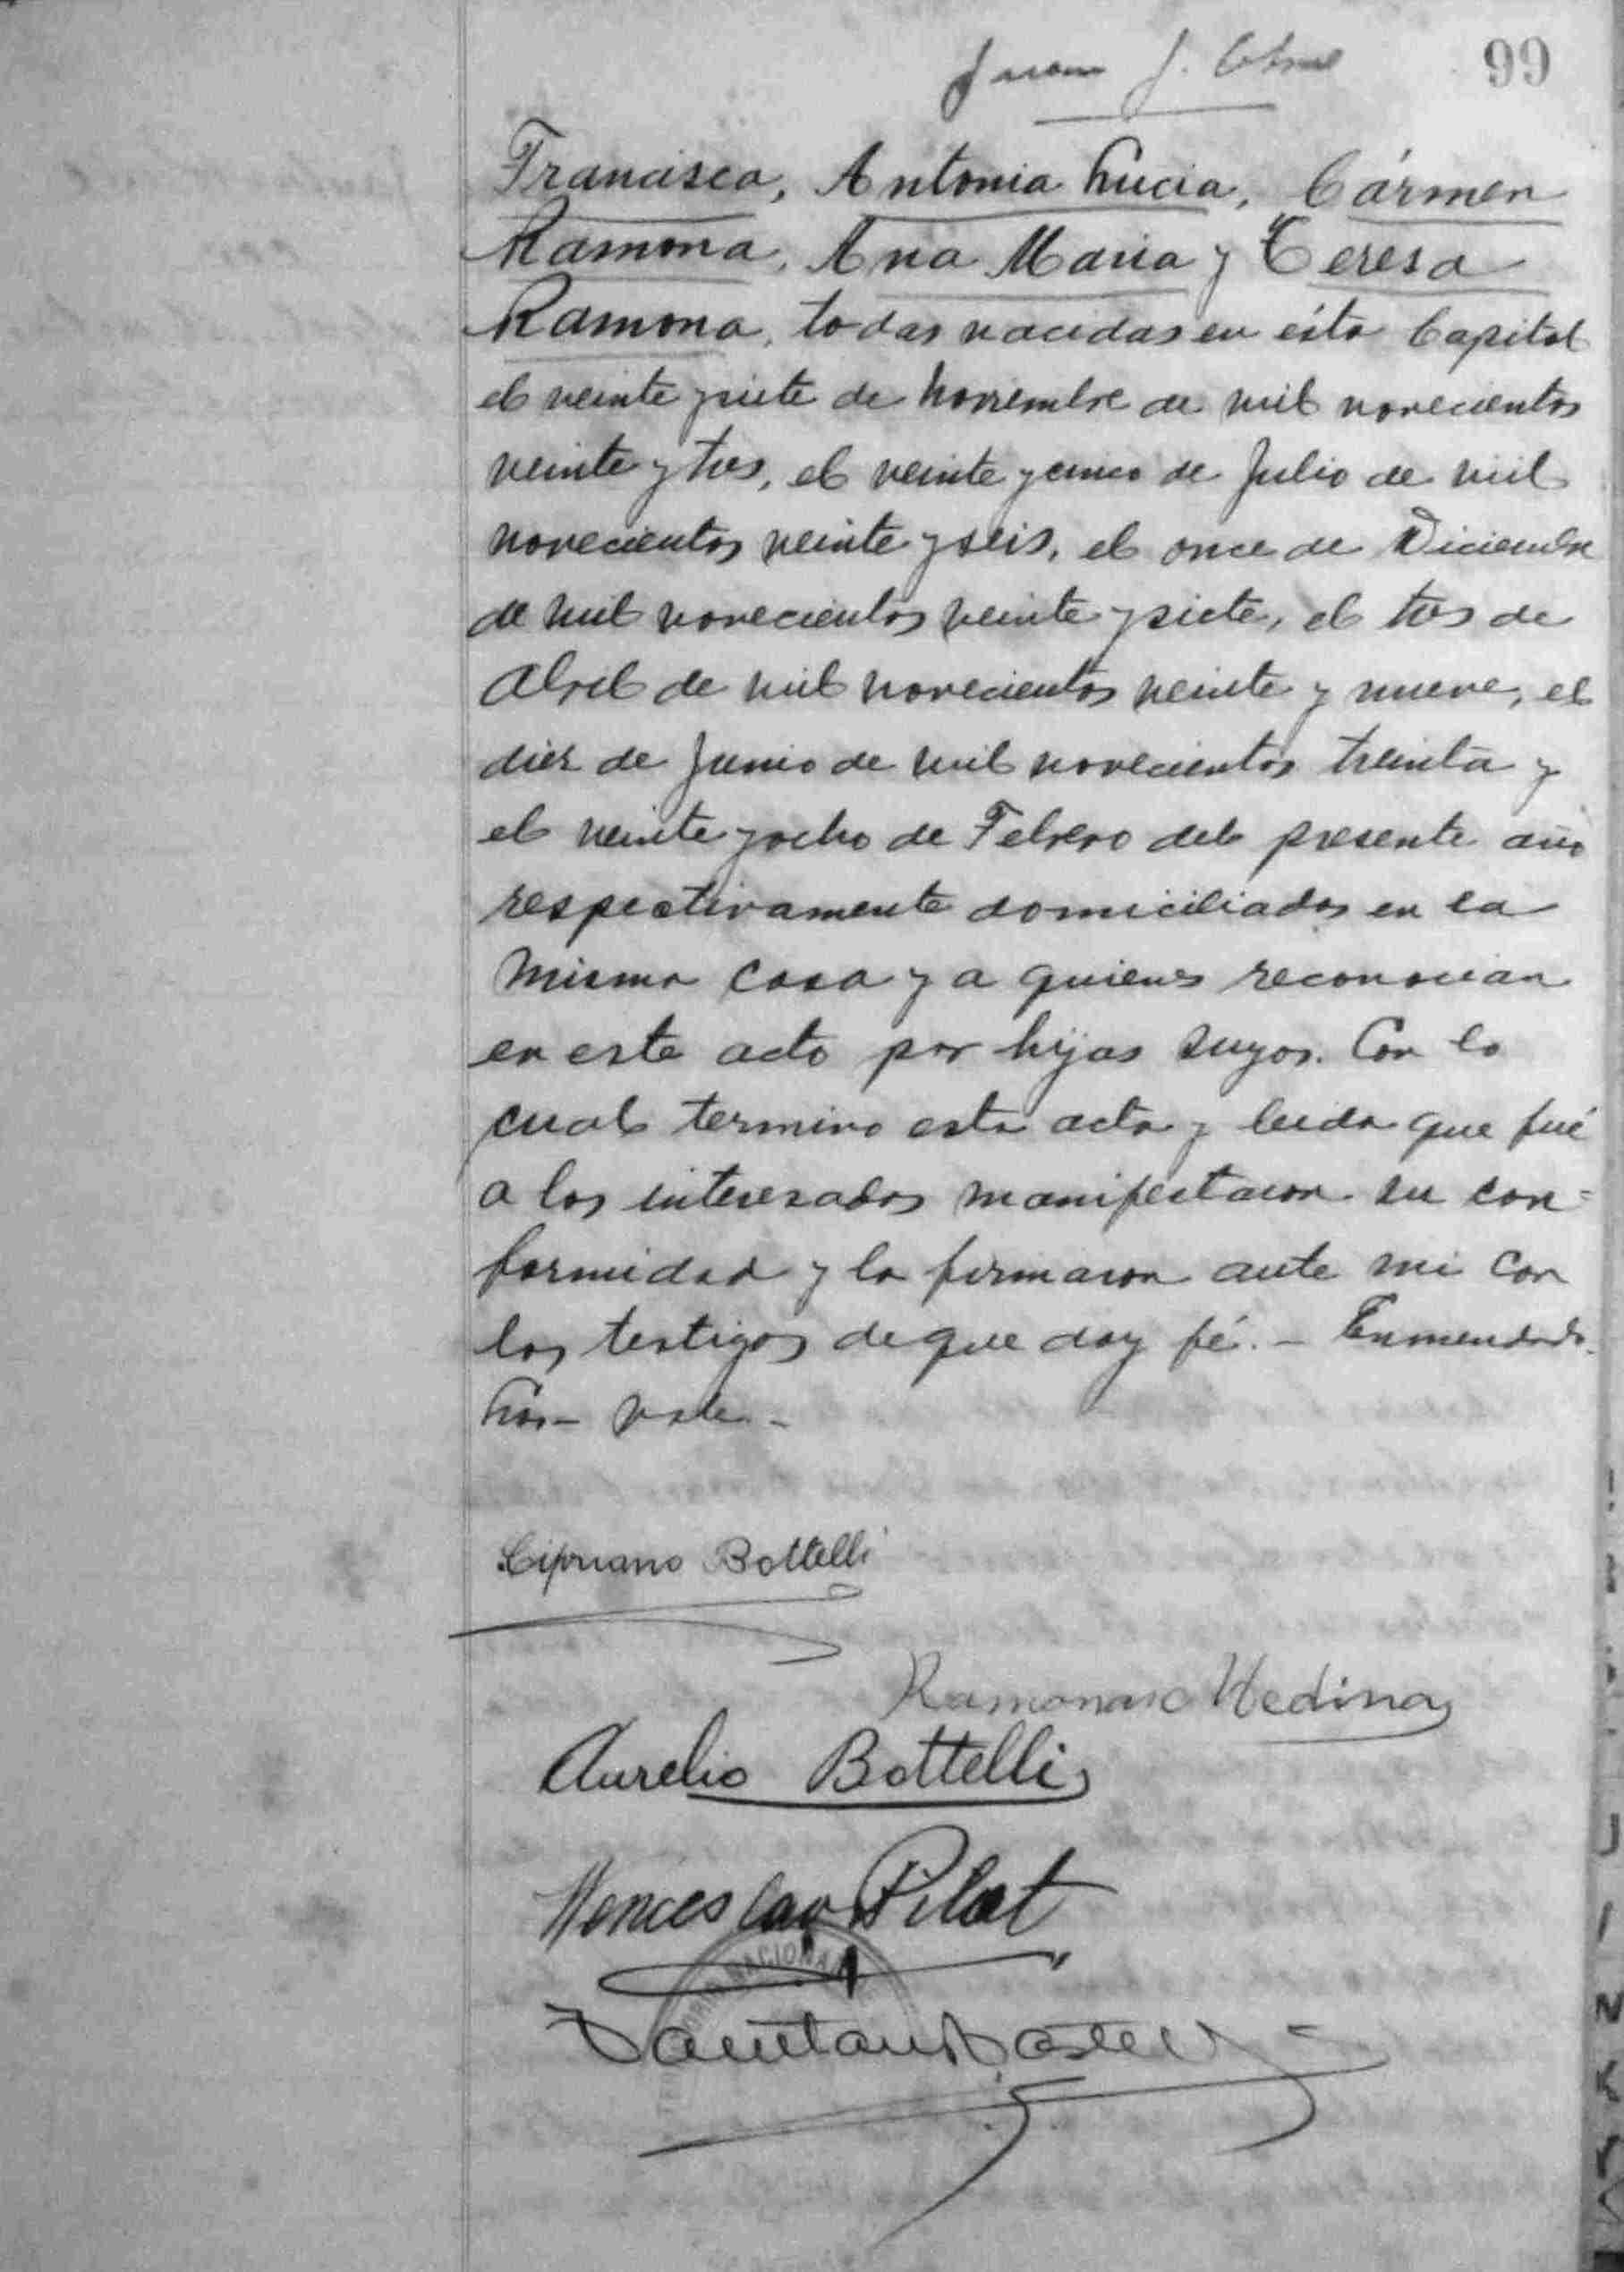 99
Francisca, Antonia Lucia, Cármen
Ramona, Ana Maria y Teresa
Ramona, todas nacidas en ésta Capital
el veinte y siete de Noviembre de mil novecientos
veinte y tres, el veinte y cinco de Julio de mil
novecientos veinte y seis, el once de Diciembre
de mil novecientos veinte y siete, el tres de
Abril de mil novecientos veinte y nueve, el
diez de Junio de mil novecientos treinta y
el veinte y ocho de Febrero del presente año
respectivamente domiciliadas en la
misma casa y a quienes reconocian
en este acto por hijas suyas. Con lo
cual termino esta acta y leida que fué
a los interesados manifestaron su con=
formidad y la firmaron ante mi con
los testigos de que doy fé. - Enmendado.
vale -
Cipriano Bottelli
Medina
Aurelio Bottelli
Wenceslao Pilat
NACIONAL